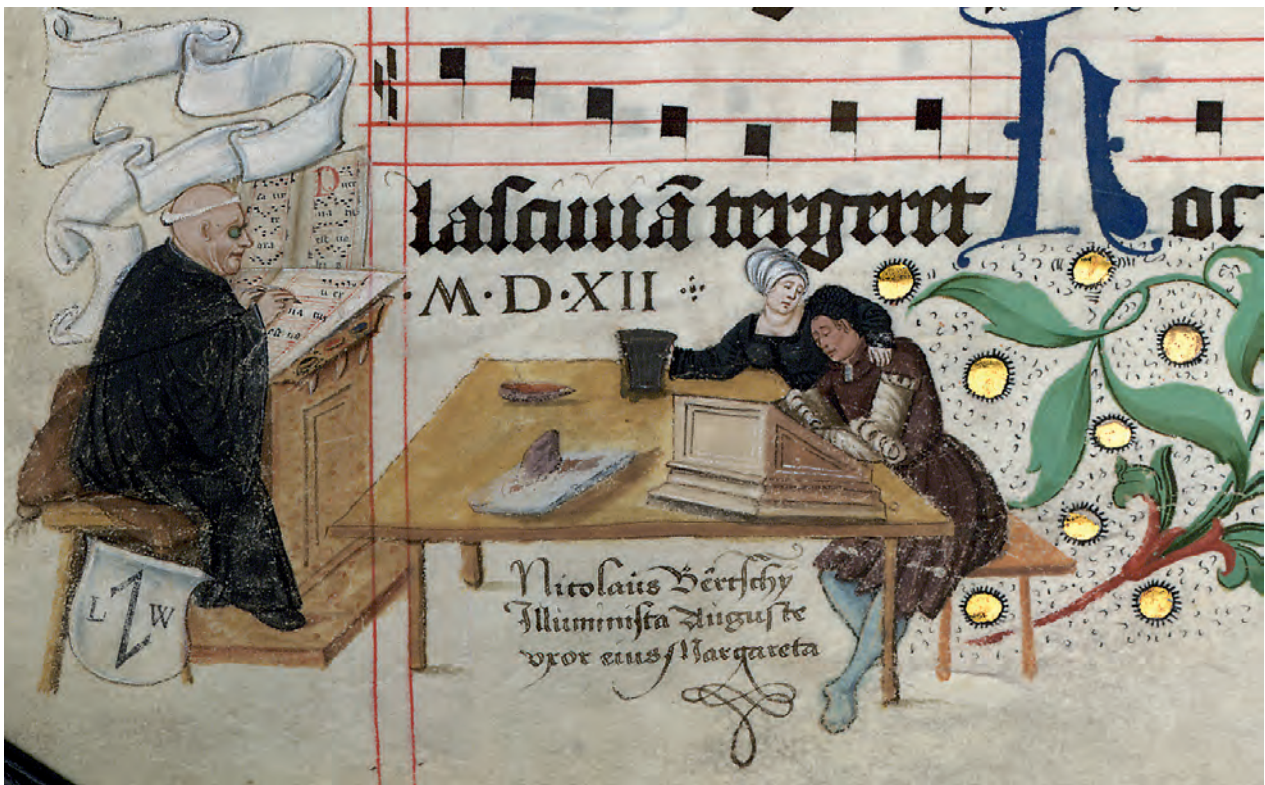 lasciuiā tergeret Hoc
·M·D·XII
Nicolaus Bertschÿ
Illuminista Auguste
vxor eius Margareta
L Z W